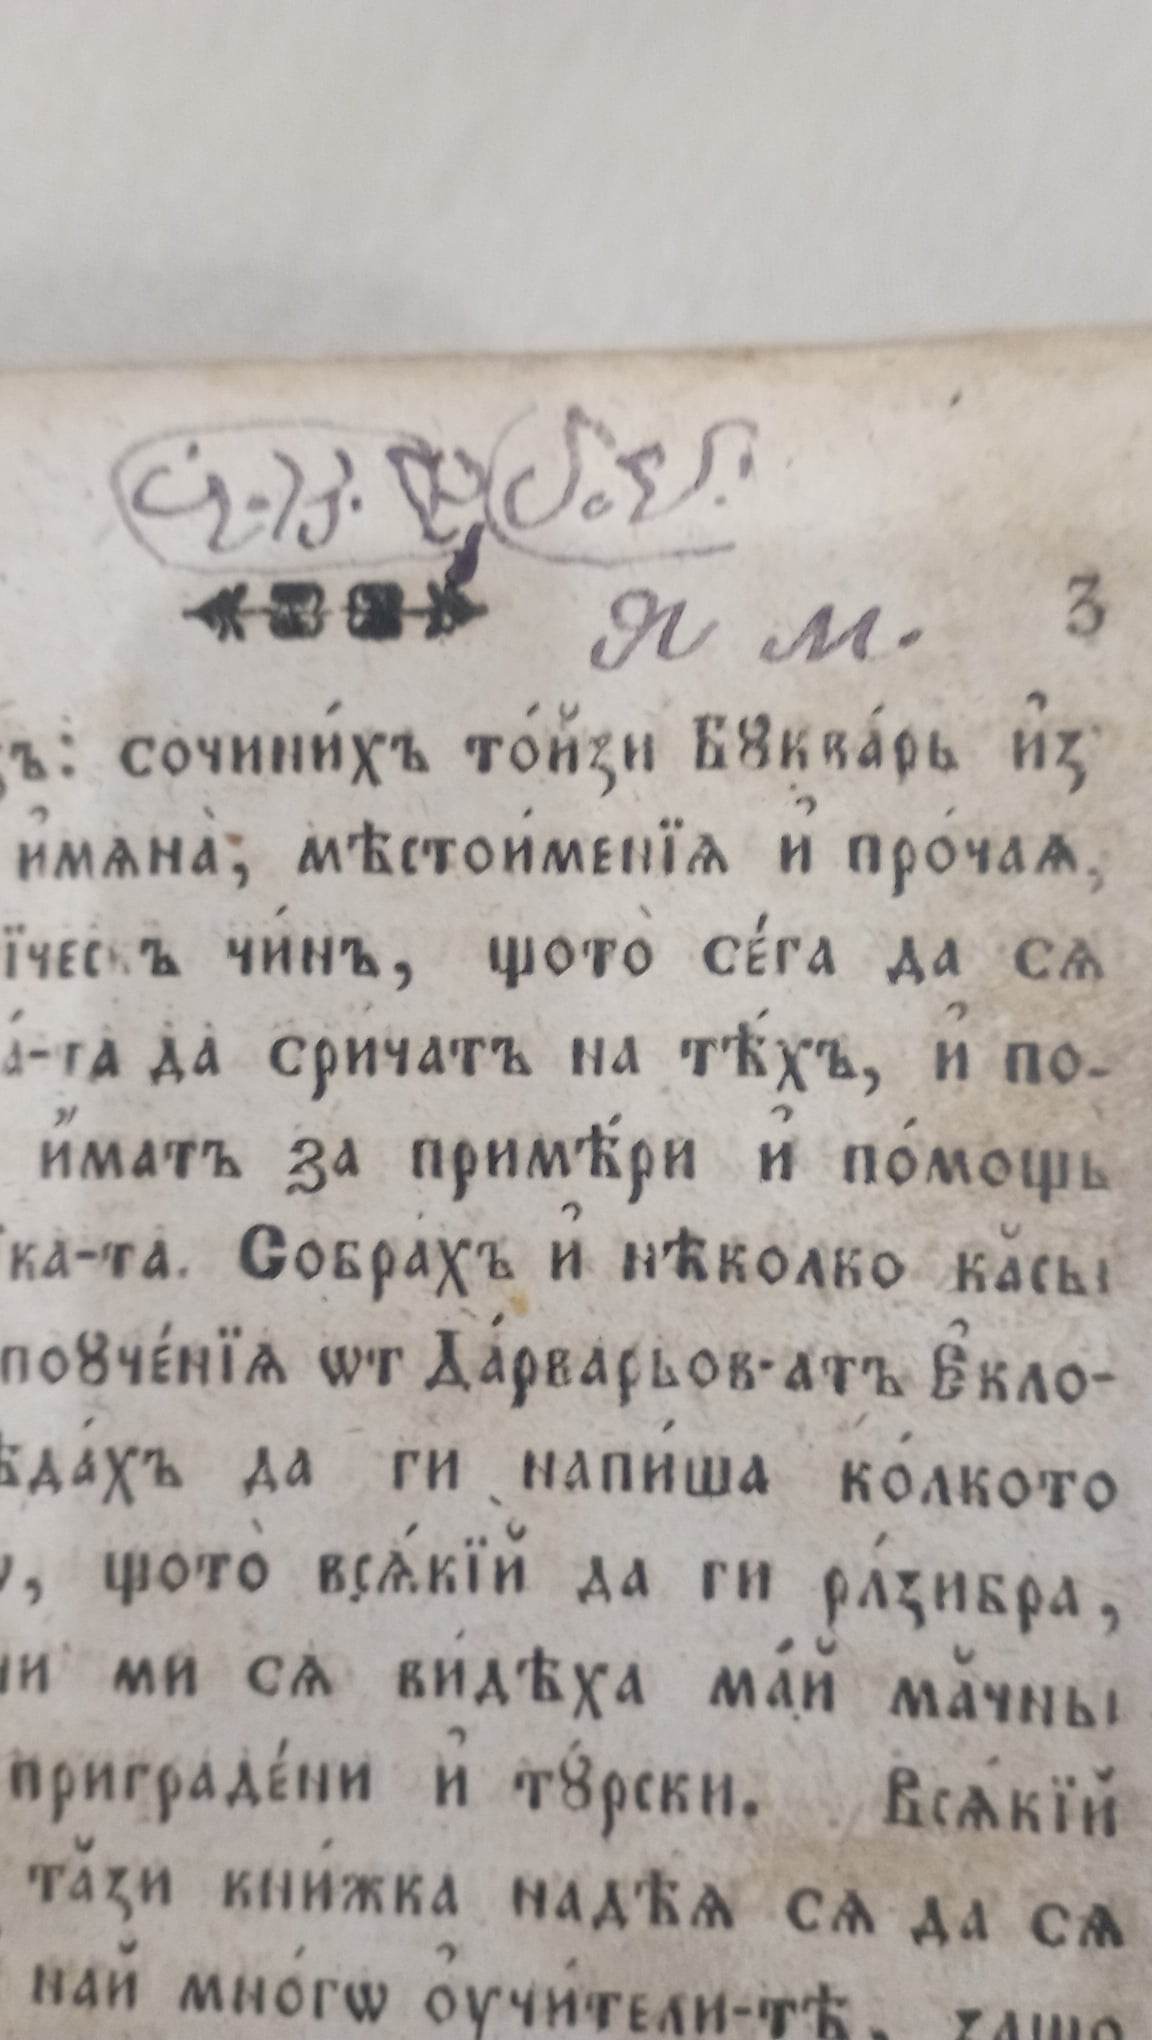 Я М. 3
сочини́хъ то́йзи Бꙋква́рь и҆з
и҆мѧна̀; мѣстои́менїѧ и҆ про́чаѧ,
чи́нъ, щото̀ се́га да сѧ
да сри́чатъ на тѣ́хъ, и҆ по-
и҆́матъ за примѣ́ри и҆ по́мощь
ка-та. Собра́хъ и҆ нѣколко кӑсы
поꙋче́нїѧ ѿт Да́рварьов-атъ Е҆кло-
да ги напи́ша ко́лкото
щото̀ всѧ́кїй да ги ра́зибра,
ми сѧ ви́дѣха ма́й мӑчны
приграде́ни и҆ тꙋ́рски. Всѧ́кїй
тӑзи кни́жка надѣѧ сѧ да сѧ
най мно́гѡ ѻ҆учи́тели-тѣ,